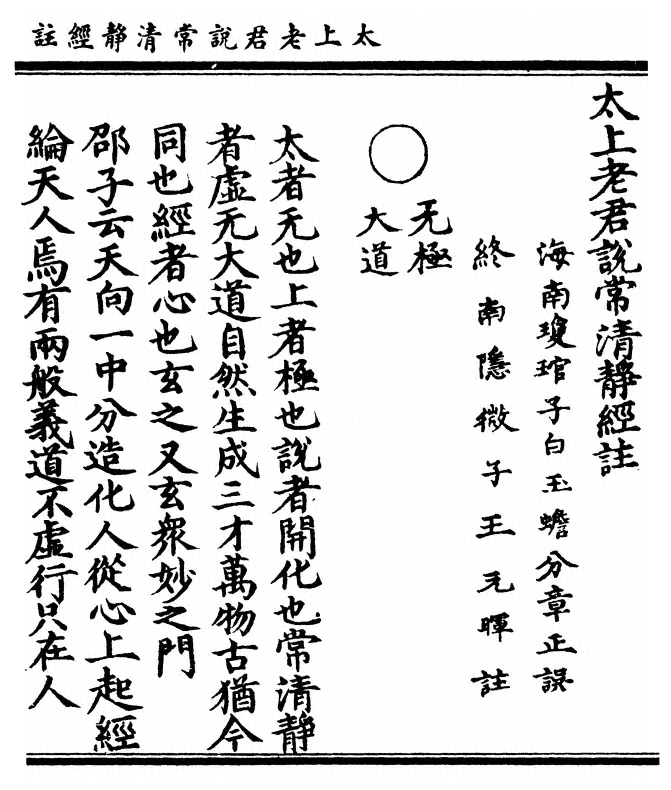 太上老君說常清靜經註
太上老君說常清靜經註
海南瓊琯子白玉蟾分章正誤
終南隱微子王元暉註
无極
大道
太者无也上者極也說者開化也常清靜
者虛无大道自然生成三才萬物古猶今
同也經者心也玄之又玄衆妙之門
邵子云天向一中分造化人從心上起經
綸天人焉有兩般義道不虛行只在人